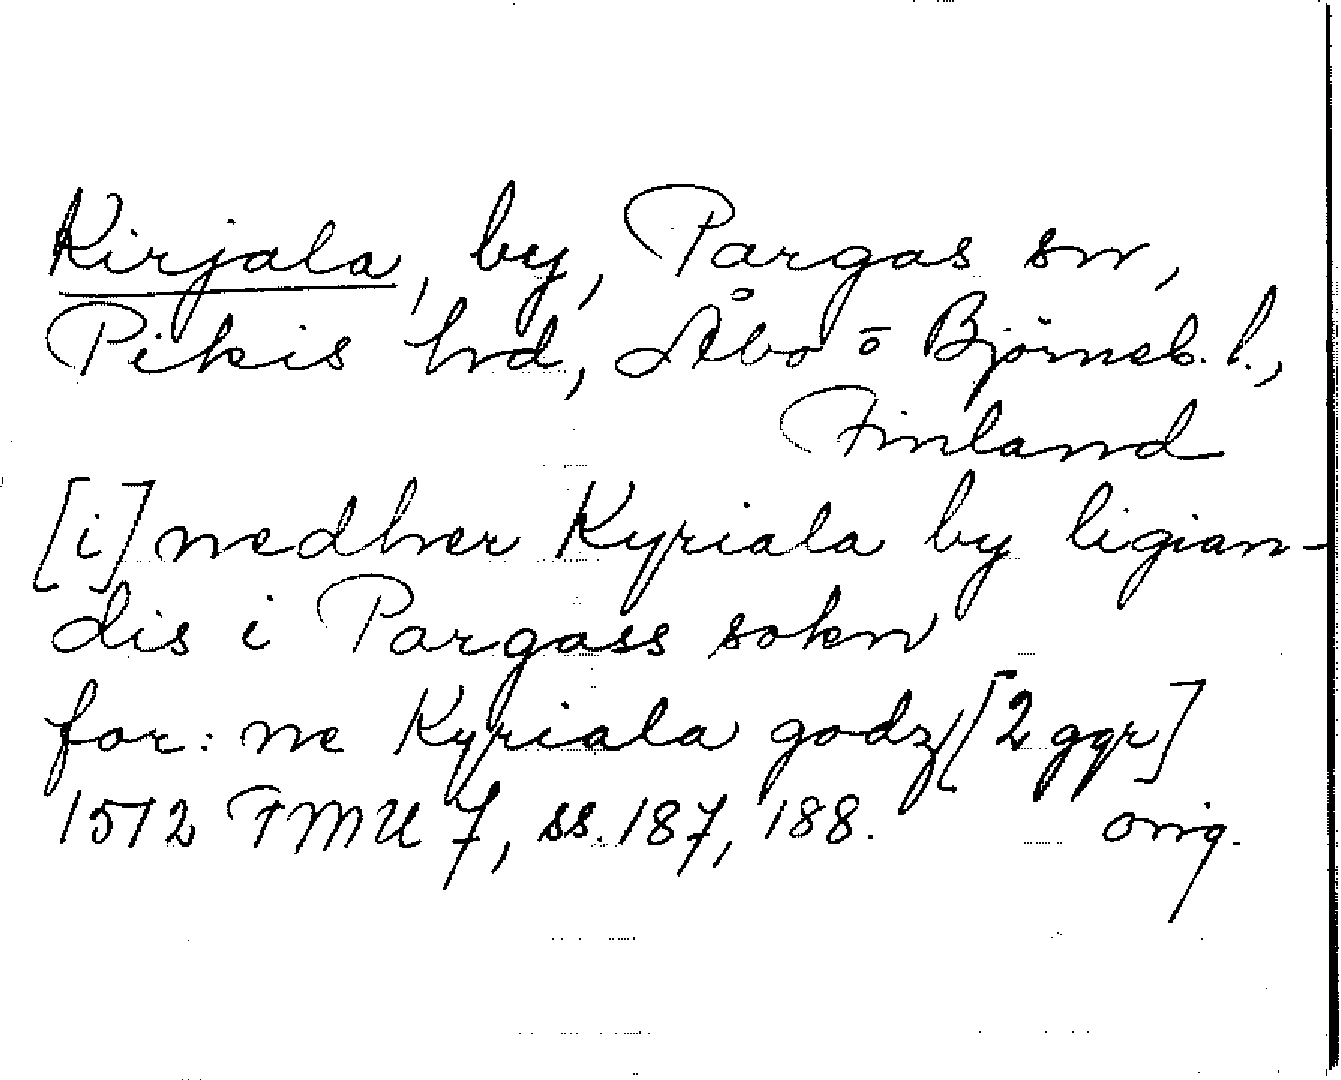 Kirjala, by, Pargas sn,
Pikis hd, Åbo o Björneb. l.,
Finland
[i] nedher Kyriala by ligian-
dis i Pargass sokn
for: ne Kyriala godz [2 ggr]
1512 FMU 7, ss. 187, 188. orig.